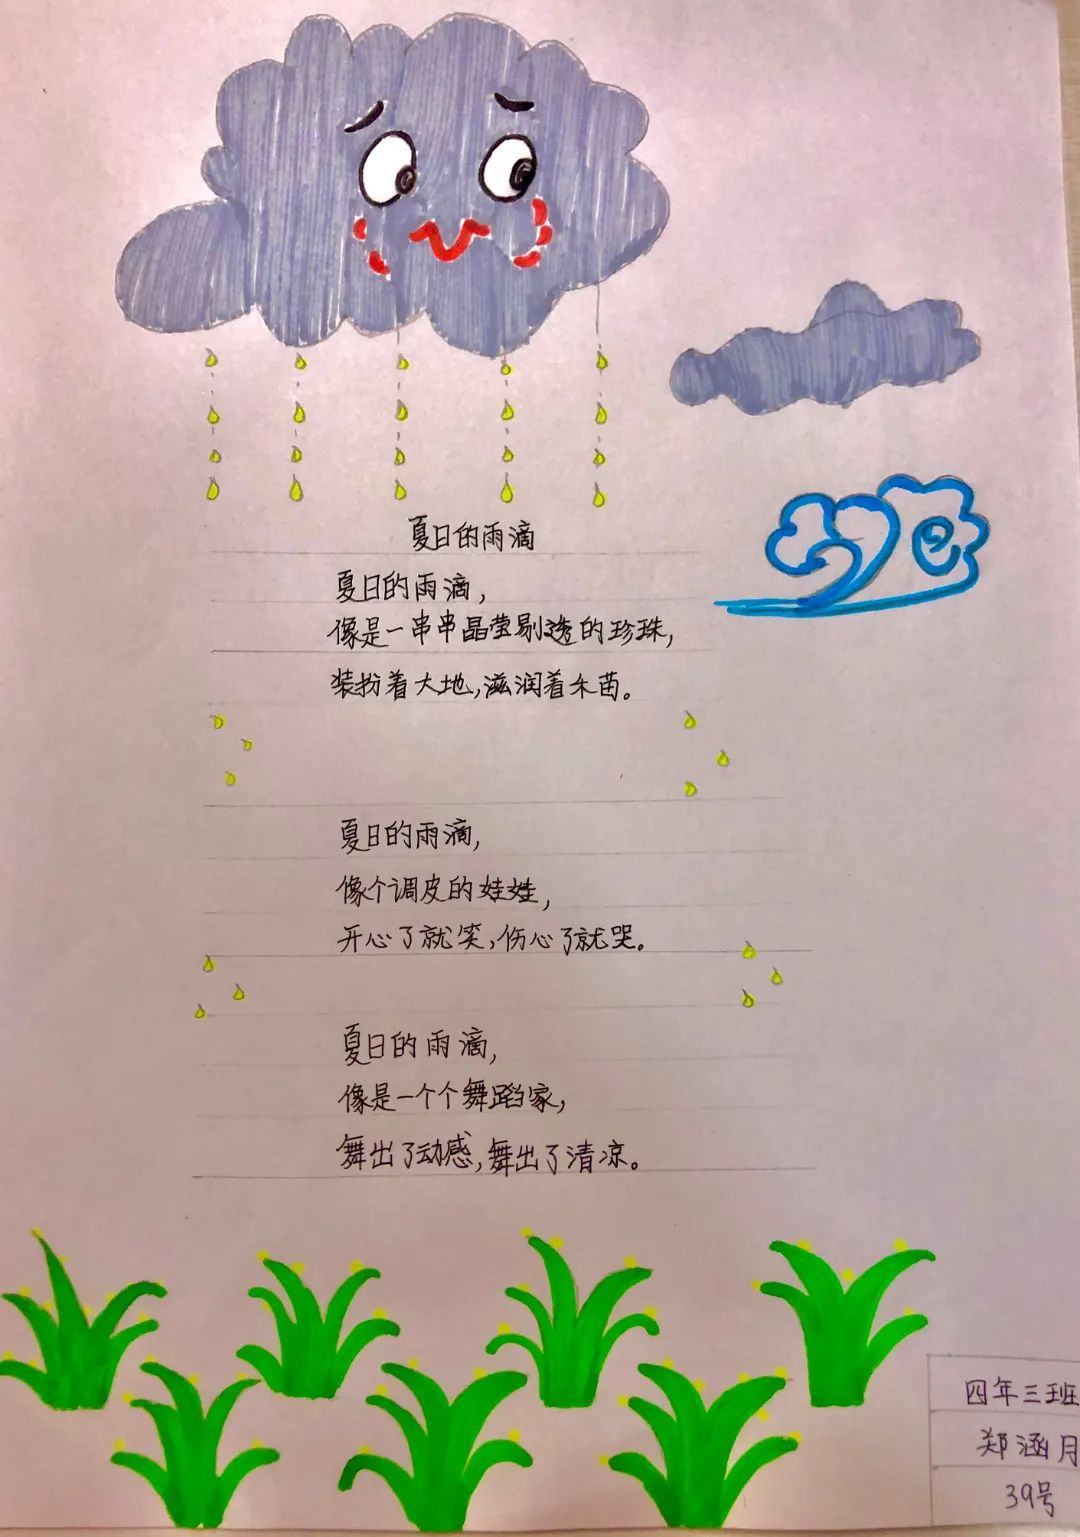 夏日的雨滴
夏日的雨滴，
像是一串串晶莹剔透的珍珠，
装扮着大地，滋润着禾苗。
夏日的雨滴，
像个调皮的娃娃，
开心了就笑，伤心了就哭。
夏日的雨滴，
像是一个个舞蹈家，
舞出了动感，舞出了清凉。
四年三班
郑涵月
39号